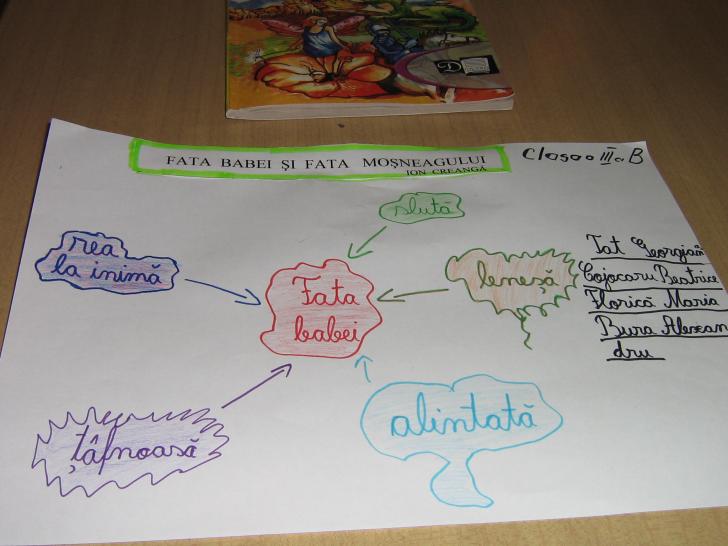 FATA BABEI ȘI FATA MOȘNEAGULUI
ION CREANGĂ
Clasa a III a B
slută
rea
la inimă
Fata
babei
leneșă
țâfnoasă
alintată
Tat Georgian
Cojocaru Beatrice
Florică Maria
Bura Alexan
dru